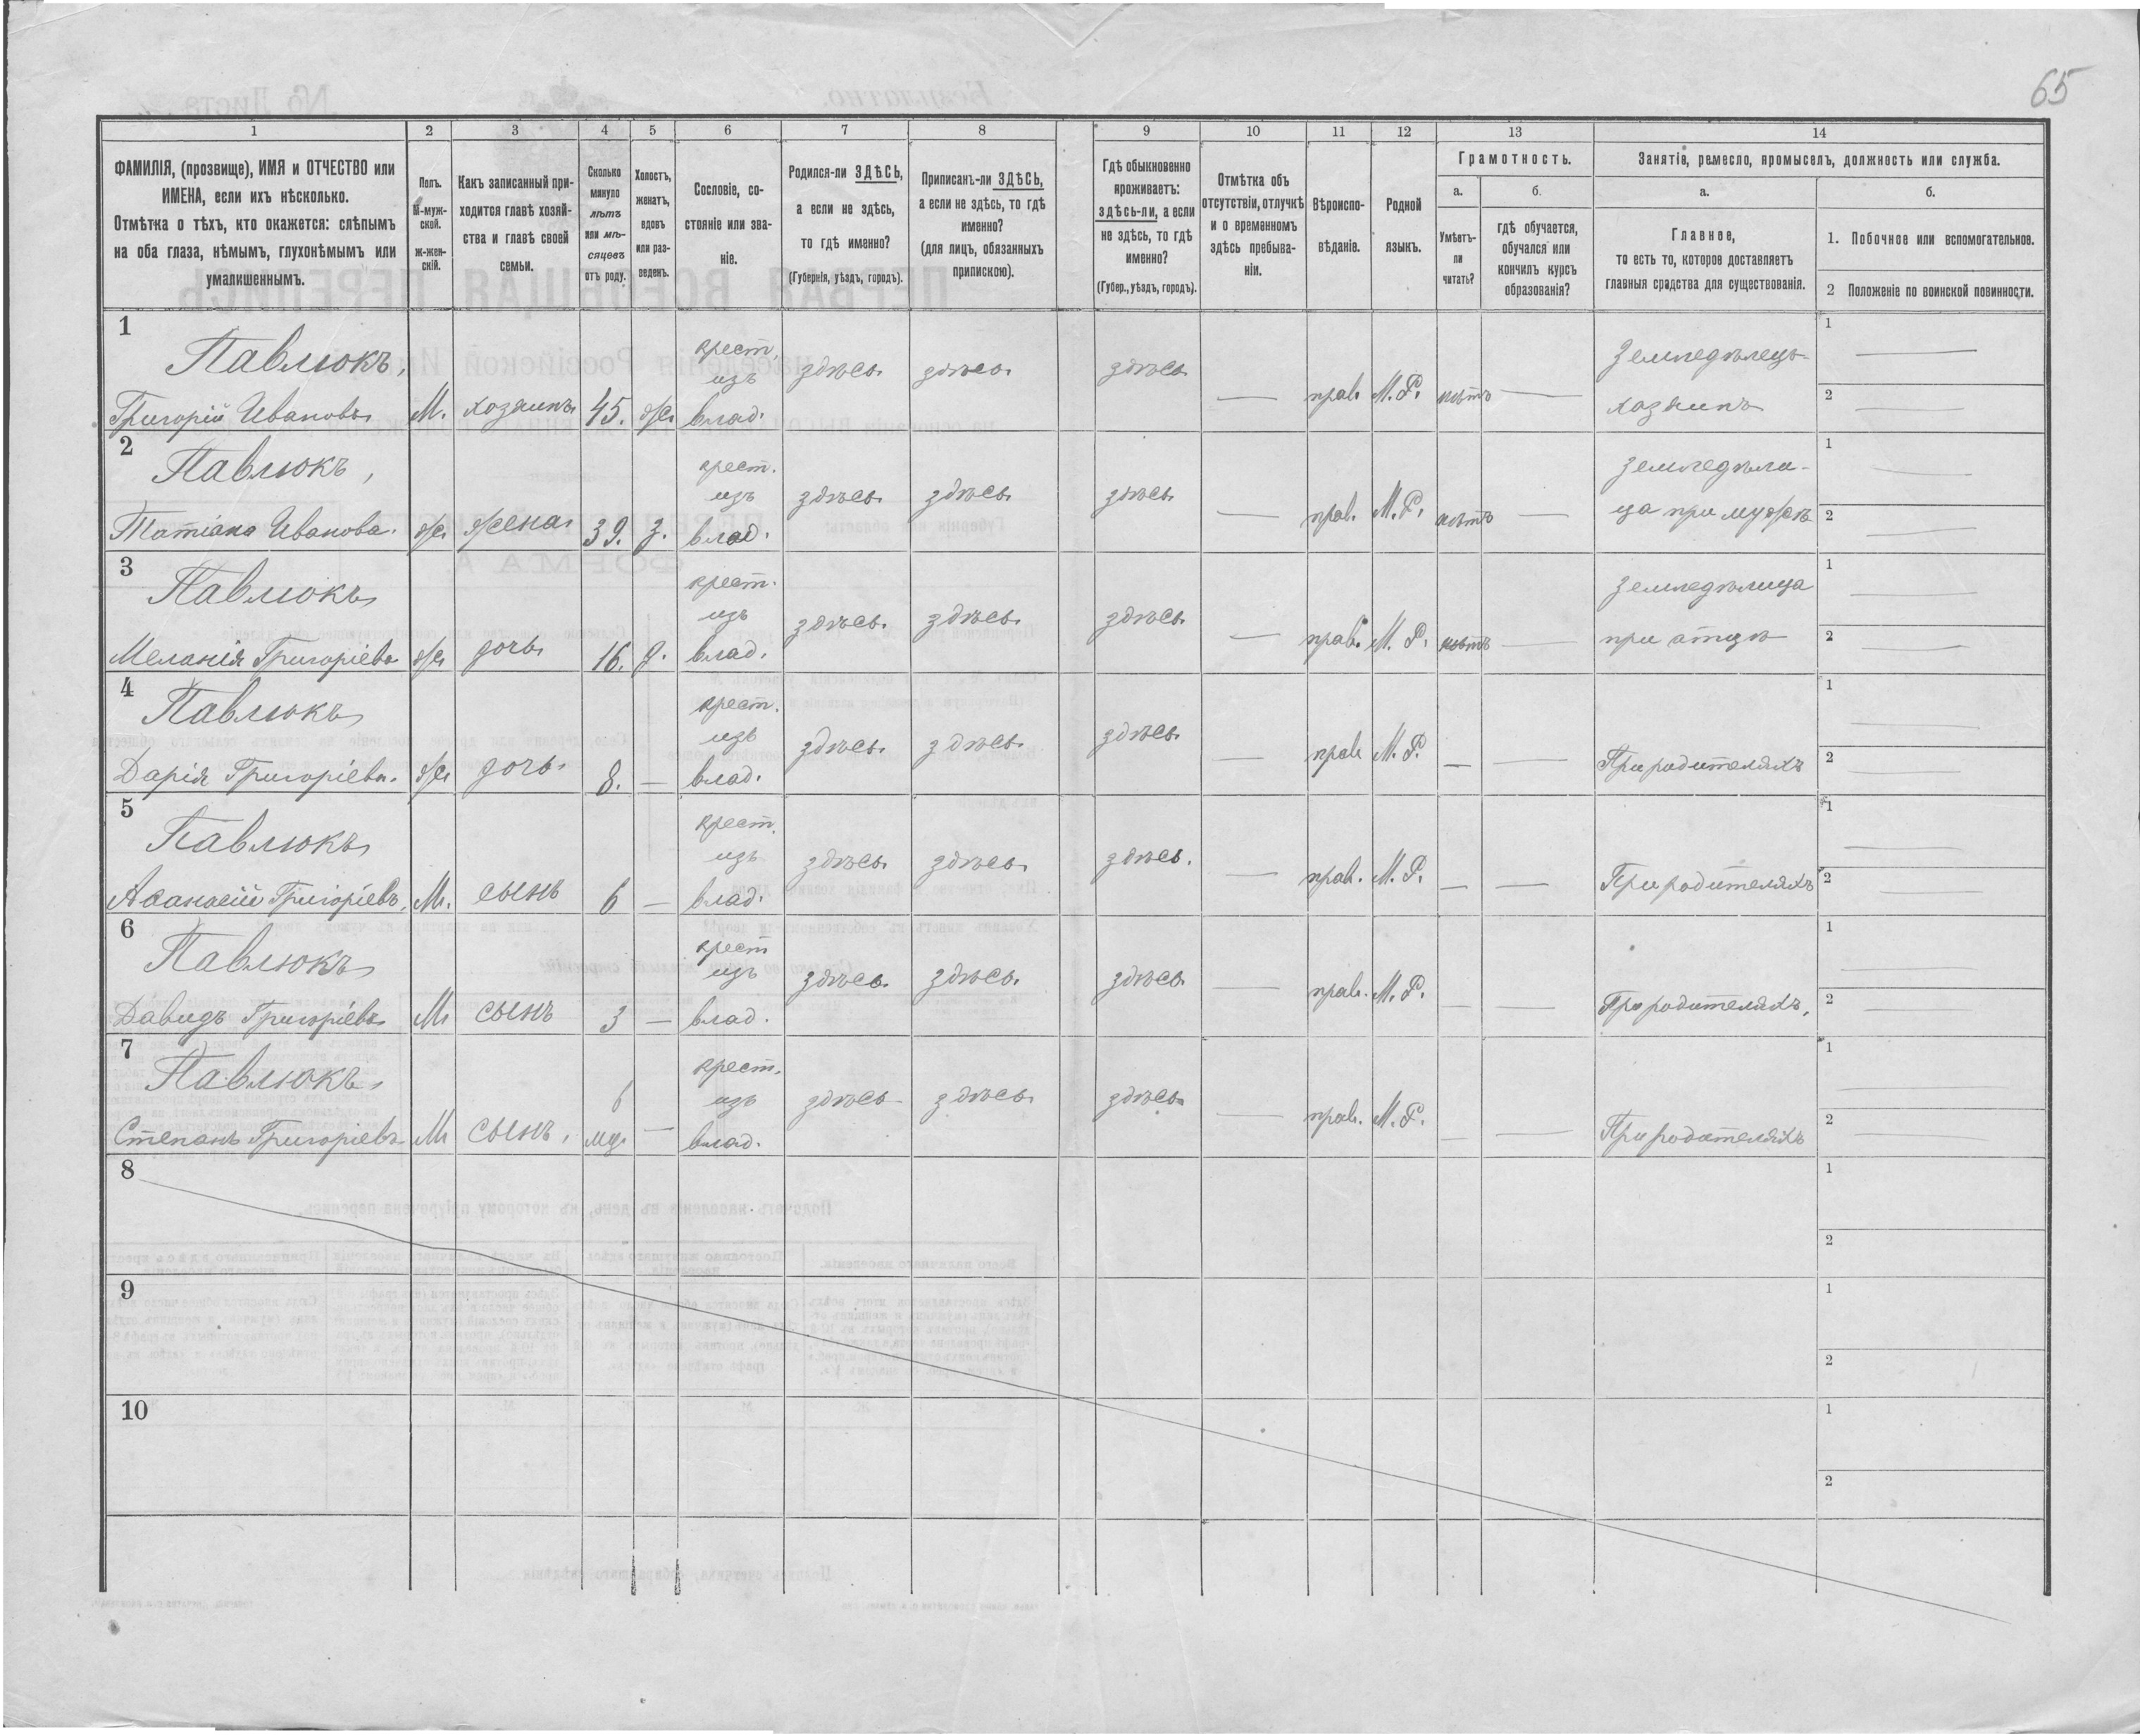 65
1 2 3 4 5 6 7 8 9 10 11 12 13 14
ФАМИЛІЯ, (прозвище), ИМЯ и ОТЧЕСТВО или
ИМЕНА, если ихъ нѣсколько.
Отмѣтка о тѣхъ, кто окажется: слѣпымъ
на оба глаза, нѣмымъ, глухонѣмымъ или
умалишеннымъ.
Полъ.
М-муж-
ской.
Ж-жен-
скій.
Какъ записанный при-
ходится главѣ хозяй-
ства и главѣ своей
семьи.
Сколько
минуло
лѣтъ
или мѣ-
сяцевъ
отъ роду.
Холостъ,
женатъ,
вдовъ
или раз-
веденъ.
Сословіе, со-
стояніе или зва-
ніе.
Родился-ли ЗДѢСЬ,
а если не здѣсь,
то гдѣ именно?
(Губернія, уѣздъ, городъ).
Приписанъ-ли ЗДѢСЬ,
а если не здѣсь, то гдѣ
именно?
(для лицъ, обязанныхъ
припискою).
Гдѣ обыкновенно
проживаетъ:
здѣсь-ли, а если
не здѣсь, то гдѣ
именно?
(Губер., уѣздъ, городъ).
Отмѣтка объ
отсутствіи, отлучкѣ
и о временномъ
здѣсь пребыва-
ніи.
Вѣроиспо-
вѣданіе.
Родной
языкъ.
Грамотность.
а.
Умѣетъ-
ли
читать?
б.
гдѣ обучается,
обучался или
кончилъ курсъ
образованія?
Занятіе, ремесло, промыселъ, должность или служба.
а.
Главное,
то есть то, которое доставляетъ
главныя средства для существованія.
б.
1. Побочное или вспомогательное.
2 Положеніе по воинской повинности.
1
Павлюкъ,
Григорій Ивановъ М. хозяинъ 45. же крест. изъ влад. здѣсь здѣсь здѣсь — прав. М.Р. нѣтъ — Земледѣлецъ-
хозяинъ
1 —
2 —
2
Павлюкъ,
Татіана Иванова. же жена 39. з. крест. изъ влад. здѣсь здѣсь здѣсь — прав. М.Р. нѣтъ — земледѣли-
ца при мужѣ
1 —
2 —
3
Павлюкъ
Меланія Григоріева же дочь 16. д. крест. изъ влад. здѣсь здѣсь здѣсь — прав. М.Р. нѣтъ — земледѣлица
при отцѣ
1 —
2 —
4
Павлюкъ
Дарія Григоріева. же дочь 8. — крест. изъ влад. здѣсь здѣсь здѣсь — прав М.Р. — — При родителяхъ
1 —
2 —
5
Павлюкъ
Аѳанасій Григоріевъ. М. сынъ 6 — крест. изъ влад. здѣсь здѣсь здѣсь. — прав. М.Р. — — При родителяхъ
1 —
2 —
6
Павлюкъ
Давидъ Григоріевъ М сынъ 3 — крест изъ влад. здѣсь здѣсь. здѣсь — прав. М.Р. — — При родителяхъ.
1 —
2 —
7
Павлюкъ
Степанъ Григоріевъ М сынъ. 6 мц. — крест. изъ влад. здѣсь здѣсь здѣсь — прав. М.Р. — — При родителяхъ
1 —
2 —
8
1
2
9
1
2
10
1
2